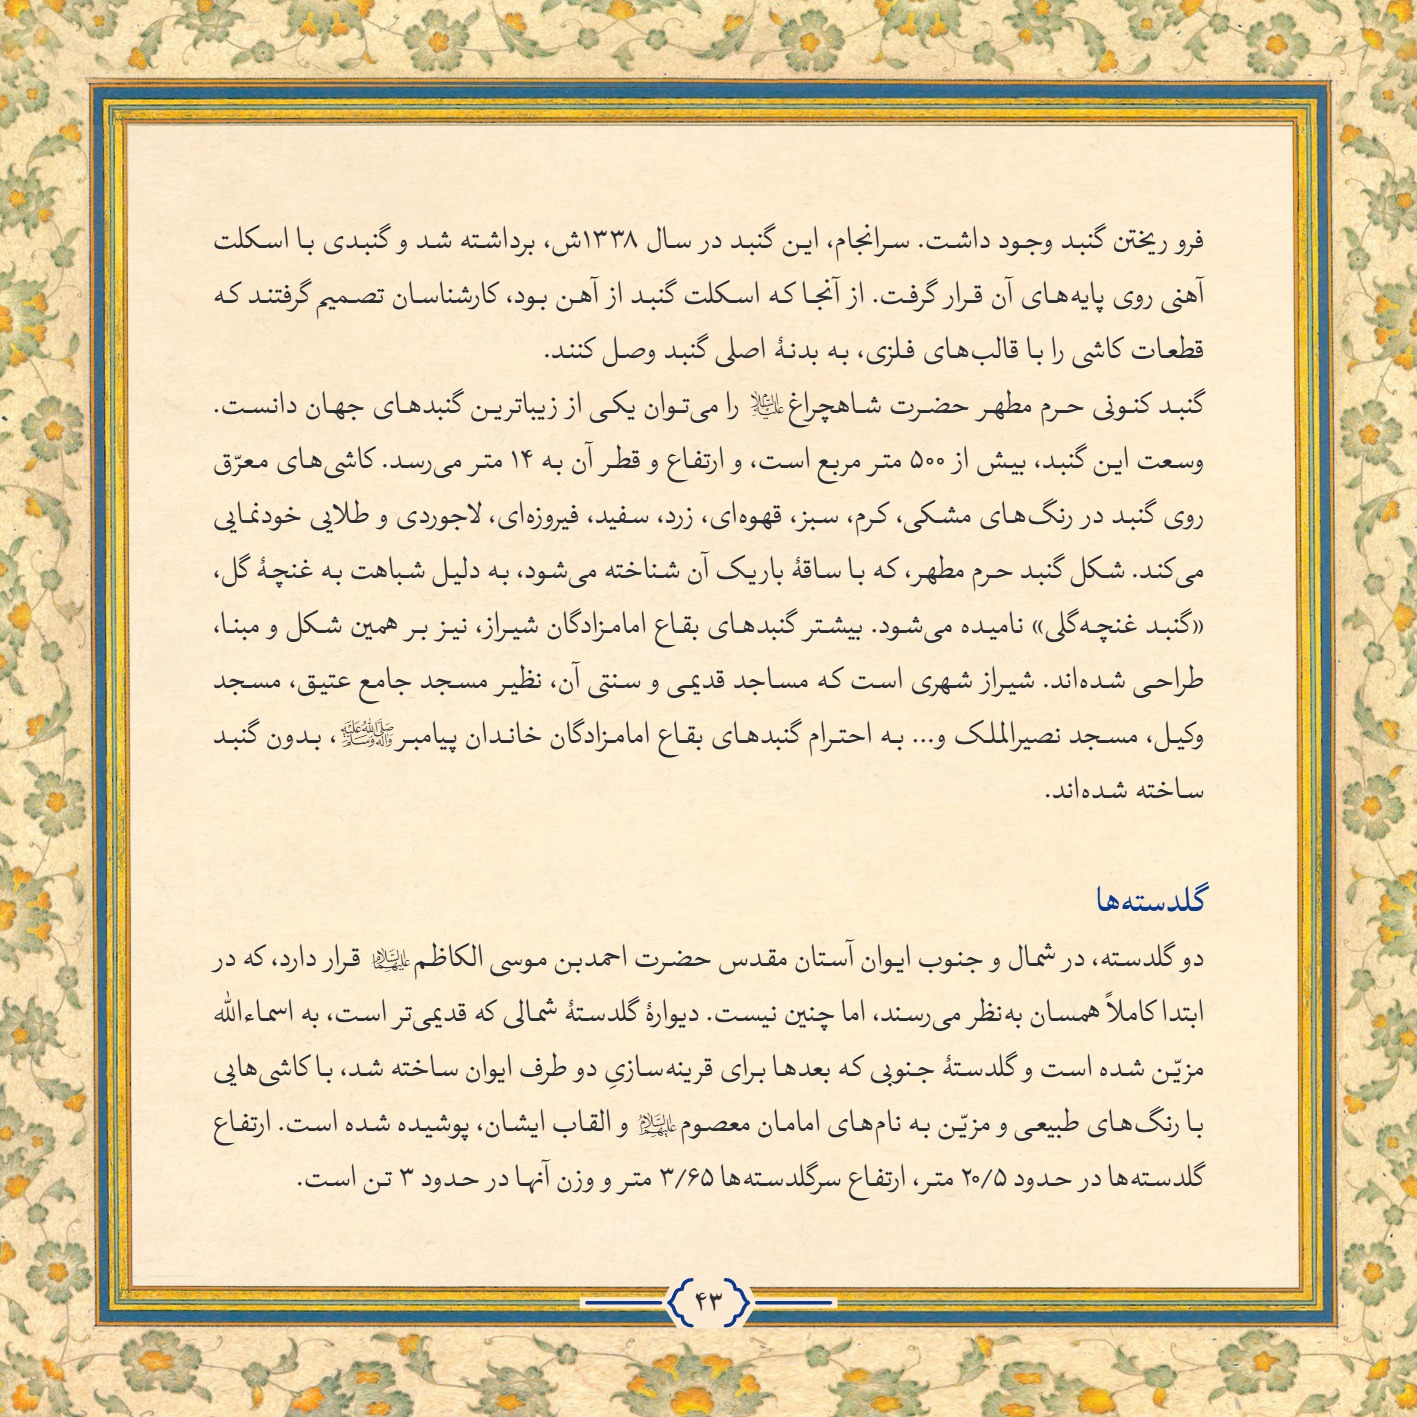 فرو ریختن گنبد وجود داشت. سرانجام، این گنبد در سال ۱۳۳۸ش، برداشته شد و گنبدی با اسکلت
آهنی روی پایه‌های آن قرار گرفت. از آنجا که اسکلت گنبد از آهن بود، کارشناسان تصمیم گرفتند که
قطعات کاشی را با قالب‌های فلزی، به بدنهٔ اصلی گنبد وصل کنند.
گنبد کنونی حرم مطهر حضرت شاهچراغ علیه‌السلام را می‌توان یکی از زیباترین گنبدهای جهان دانست.
وسعت این گنبد، بیش از ۵۰۰ متر مربع است، و ارتفاع و قطر آن به ۱۴ متر می‌رسد. کاشی‌های معرّق
روی گنبد در رنگ‌های مشکی، کرم، سبز، قهوه‌ای، زرد، سفید، فیروزه‌ای، لاجوردی و طلایی خودنمایی
می‌کند. شکل گنبد حرم مطهر، که با ساقهٔ باریک آن شناخته می‌شود، به دلیل شباهت به غنچهٔ گل،
«گنبد غنچه‌گلی» نامیده می‌شود. بیشتر گنبدهای بقاع امامزادگان شیراز، نیز بر همین شکل و مبنا،
طراحی شده‌اند. شیراز شهری است که مساجد قدیمی و سنتی آن، نظیر مسجد جامع عتیق، مسجد
وکیل، مسجد نصیرالملک و... به احترام گنبدهای بقاع امامزادگان خاندان پیامبر صلی‌الله‌علیه‌وآله‌وسلم، بدون گنبد
ساخته شده‌اند.
گلدسته‌ها
دو گلدسته، در شمال و جنوب ایوان آستان مقدس حضرت احمدبن موسی الکاظم علیهماالسلام قرار دارد، که در
ابتدا کاملاً همسان به‌نظر می‌رسند، اما چنین نیست. دیوارهٔ گلدستهٔ شمالی که قدیمی‌تر است، به اسماءالله
مزیّن شده است و گلدستهٔ جنوبی که بعدها برای قرینه‌سازیِ دو طرف ایوان ساخته شد، با کاشی‌هایی
با رنگ‌های طبیعی و مزیّن به نام‌های امامان معصوم علیهم‌السلام و القاب ایشان، پوشیده شده است. ارتفاع
گلدسته‌ها در حدود ۲۰/۵ متر، ارتفاع سرگلدسته‌ها ۳/۶۵ متر و وزن آنها در حدود ۳ تن است.
۴۳